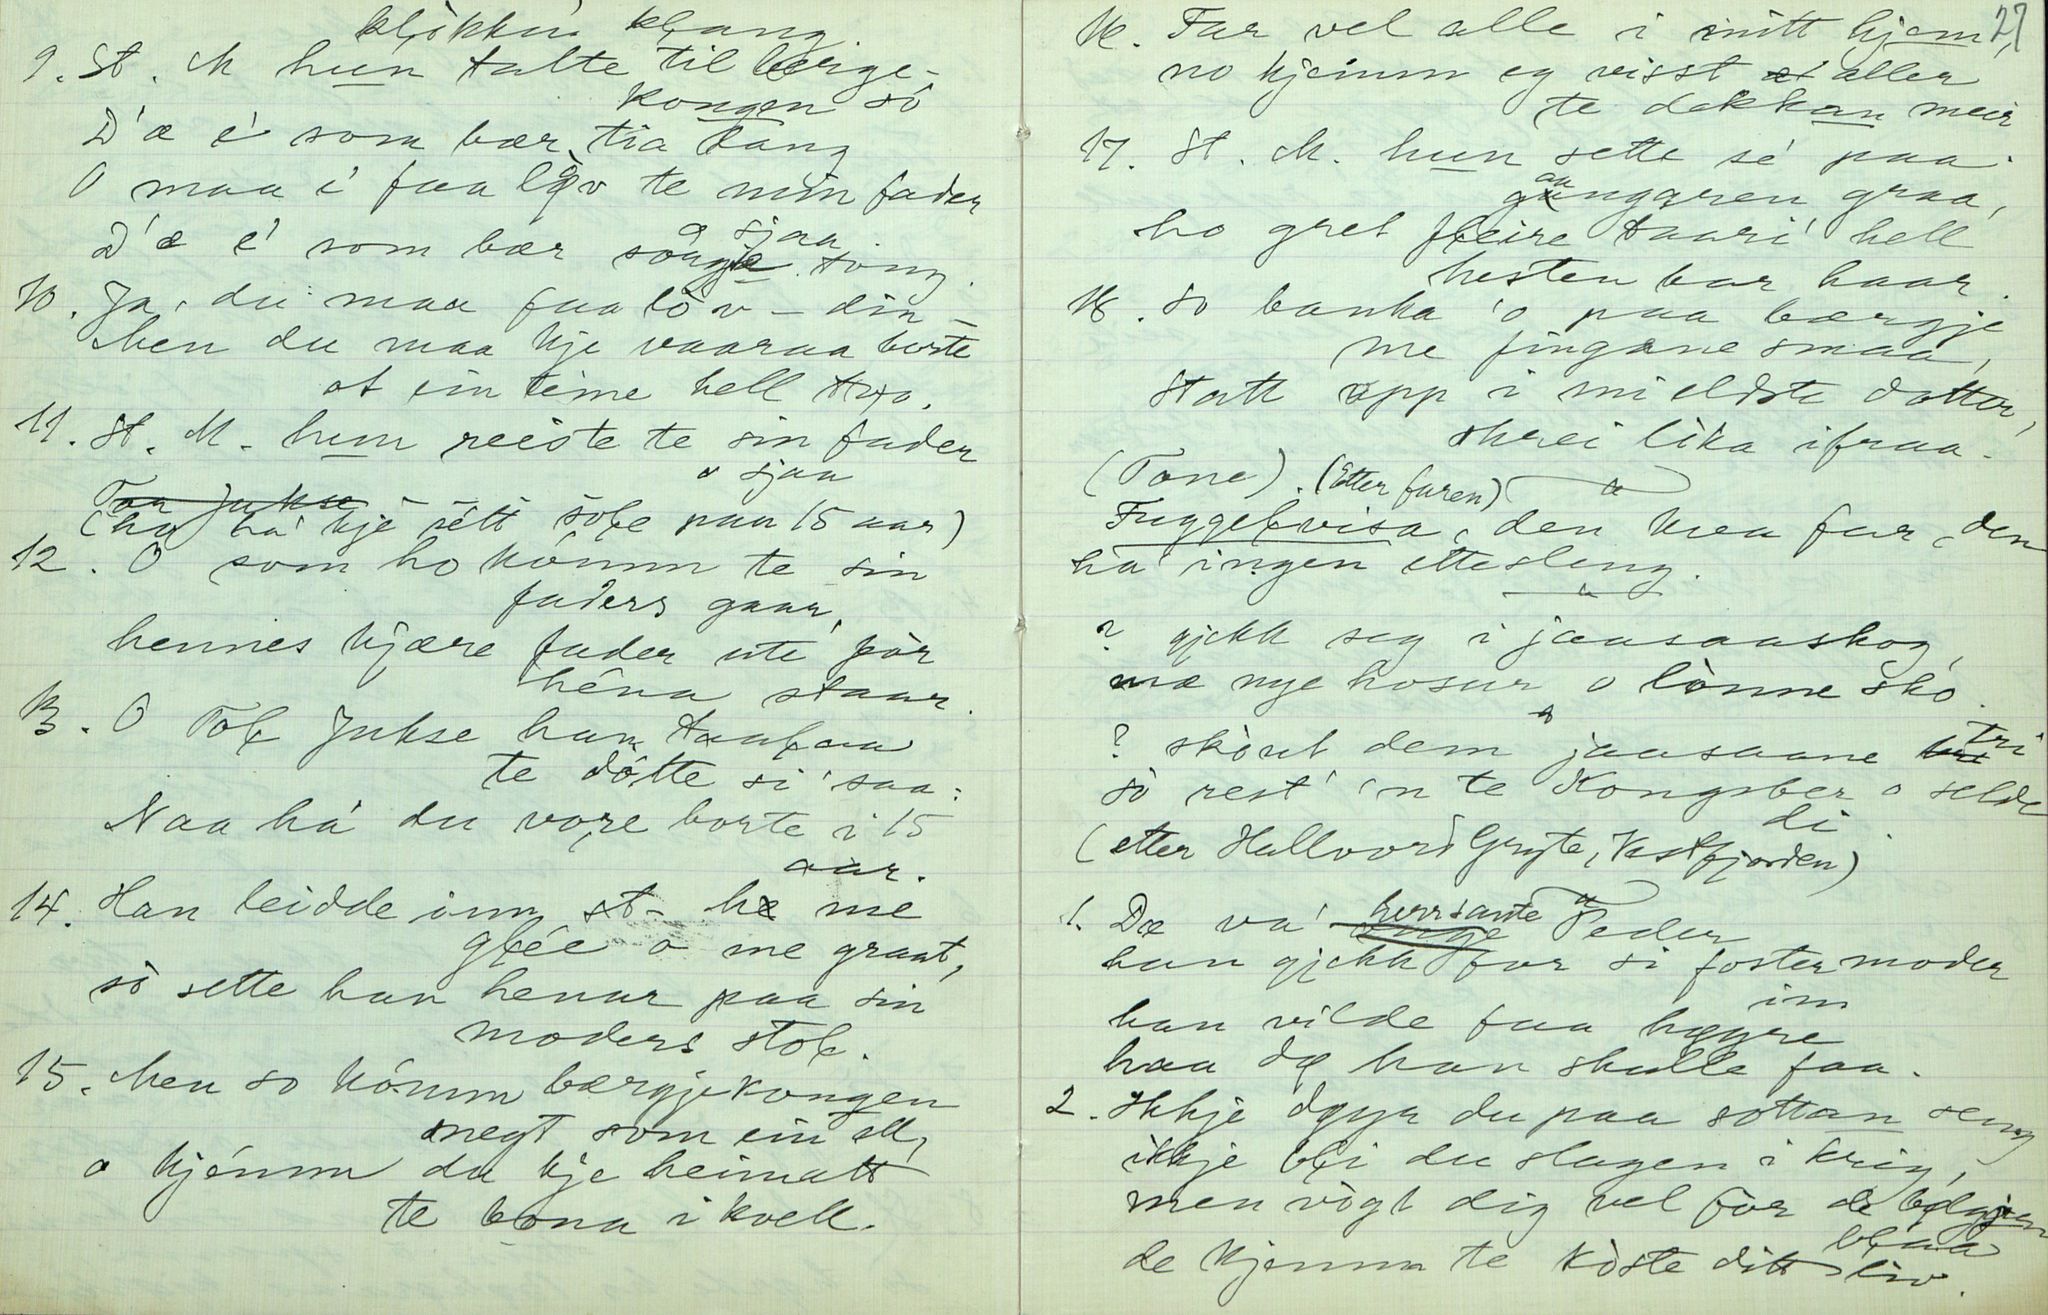 kløkkuí klang.
9. St. M hun talte til berge-
kongen so
D'æ e' som bær tia lang
O maa i faa løv te min fader
o sjaa
D'æ e' som bær sougje tong.
10. Ja, du maa faa löv – din –
Men du maa kje vaaraa borte
ot ein teime hell two.
11. St. M. hun reiste te sin fader
o sjaa
Tor Jukse
(ho há kje sétt sole paa 15 aar)
12. O som ho kómm te sin
faders gaar,
hennes kjære fader ute fòr
héna staar.
13. O Tolf Jukse han taalaa
te dótte si saa:
Naa há du vore borte i 15
aar.
14. Han leidde inn st- he me
glée o me graat,
sò sette han henar paa sin
moders stol.
15. Men so kómm bærgjekongen
megt som ein ell,
o kjémm du kje heimatt
te bona i kvell.
27
16. Far vel alle i mitt hjem,
no kjemm eg visst aller
te dekkan meir
17. St. M. hun sette sé paa
gangaren graa,
ho gret fleire taari' hell
hesten bar haar.
18. So banka 'o paa bærgje
me fingane smaa,
Statt opp i mi eldste dotter,
skrei lika ifraa.
(Tone). (Etter faren)
Fuggelvisa, den kvea far, den
há ingen ettesleng.
? gjekk seg i jaasaaskog,
mæ nye hosur o lònne skó.
? skòut dem jaasaane tri
sò rest' 'n te Kongsber o selde
di.
(etter Hallvord Gryte, Vestfjorden)
1. Dæ va' herr sante Peder
han gjekk for si fostermoder
han vilde faa høyre im
haa dæ han skulle faa.
2. Ikkje døyr du paa sottan seng
ikkje bli du slagen i krig,
men vògt dig vel fòr de bølgjan
blaa
de kjemm te kòste ditt liv.